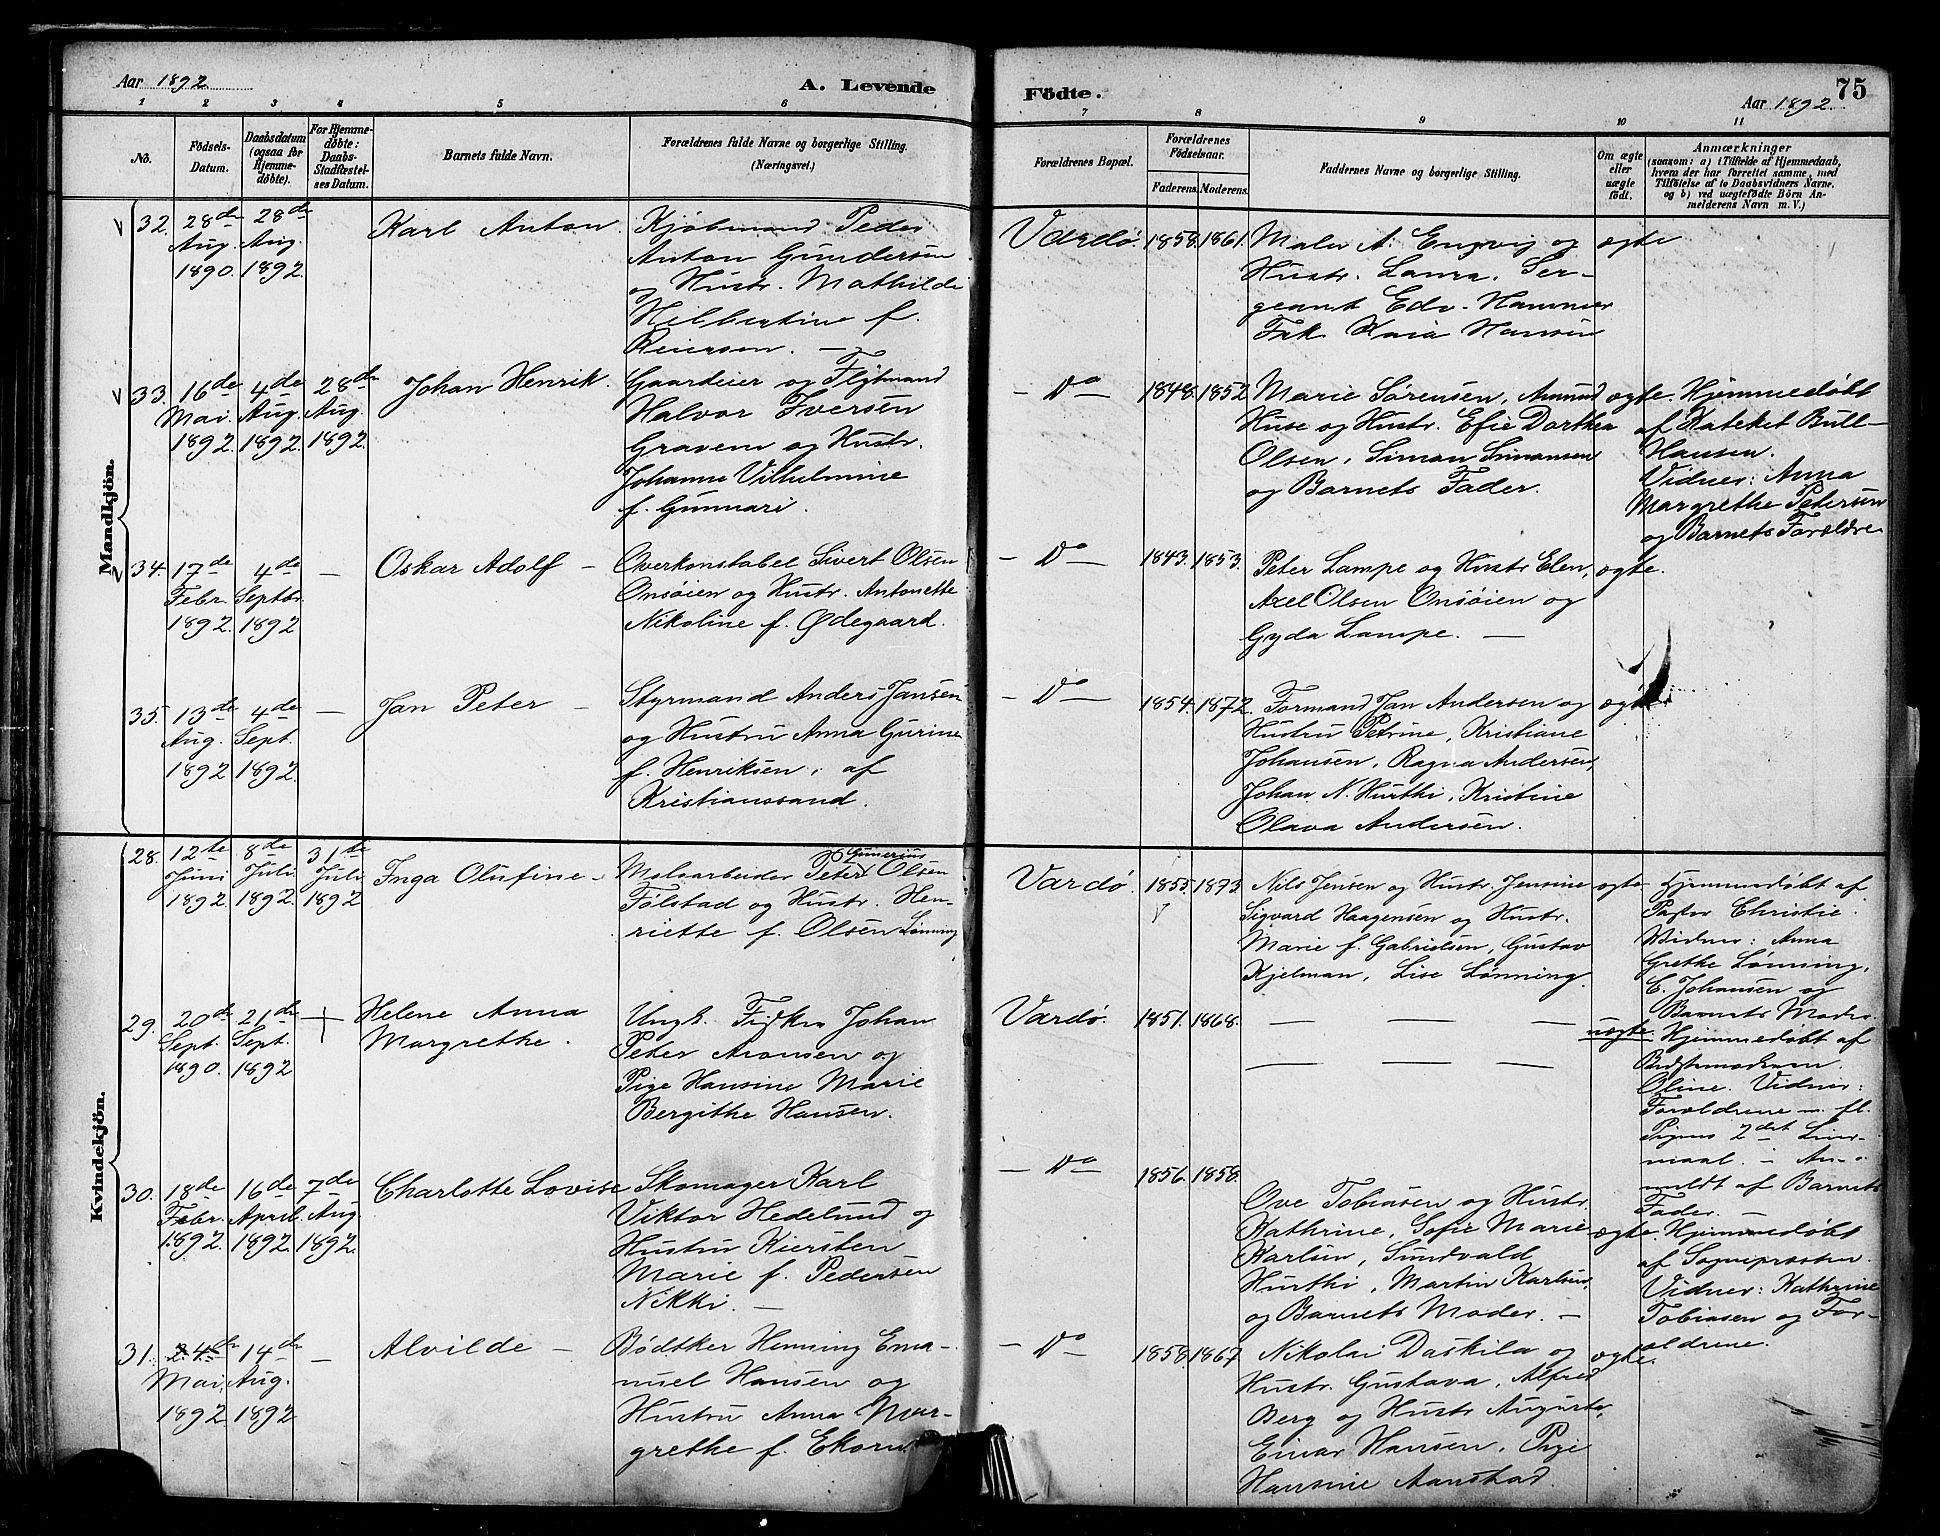 Aar 1892
A. Levende
Födte.
75
Aar 1892.
1 2 3 4 5 6 7 8 9 10 11
No.
Födsels-
Datum.
Daabsdatum
(ogsaa for
Hjemme-
döbte).
For Hjemme-
döbte:
Daabs-
Stadfæstel-
ses Datum.
Barnets fulde Navn.
Forældrenes fulde Navne og borgerlige Stilling.
(Næringsvei.)
Forældrenes Bopæl.
Forældrenes
Födselsaar.
Faderens. Moderens.
Faddernes Navne og borgerlige Stilling.
Om ægte
eller
uægte
födt.
Anmærkninger
(saasom: a) i Tilfælde af Hjemmedaab,
hvem der har forrettet samme, med
Tilföielse af to Daabsvidners Navne.
og b) ved uægtefödte Börn An-
melderens Navn m. V.)
Mandkjön.
32. 28de Aug. 1890. 28de Aug. 1892
Karl Anton.
Kjøbmand Peder
Anton Gundersen
og Hustr. Mathilde
Hilbertine f.
Reiersen. —
Vardø. 1858. 1861.
Maler A. Engvig og
Hustr. Laura, Ser-
geant Edv. Hammer
Frk Kaia Hansen
ægte
33. 16de Mai. 1892. 4de Aug. 1892. 28de Aug. 1892
Johan Henrik.
Gaardeier og Fløtmand
Halvor Iversen
Gravem og Hustr.
Johanne Vilhelmine
f. Gunnari.
— Do — 1848. 1852
Marie Sørensen, Amund
Huse og Hustr. Efie Dorthea
Olsen, Simon Simonsen
og Barnets Fader.
ægte.
Hjemmedøbt
af Kateket Bull-
Hansen.
Vidner: Anna
Margrethe Petersen
og Barnets Forældre
34. 17de Febr. 1892. 4de Septbr. 1892 —
Oskar Adolf —
Overkonstabel Sivert Olsen
Onsøien og Hustr. Antonette
Nikoline f. Ødegaard.
— Do — 1843. 1853.
Peter Lampe og Hustr Elen,
Axel Olsen Onsøien og
Gyda Lampe. —
ægte.
35. 13de Aug. 1892 4de Sept. 1892. —
Jan Peter —
Styrmand Anders Jansen
og Hustru Anna Gurine
f. Henriksen, af
Kristianssand.
— Do — 1854. 1872.
Formand Jan Andersen og
Hustru Petrine, Kristiane
Johansen, Ragna Andersen,
Johan N. Hurthi, Kristine
Olava Andersen.
ægte
Kvindekjön.
28. 12te Juni 1892. 8de Juli 1892. 31te Juli 1892
Inga Olufine —
Malaarbeider Peter Gunerius Olsen
Følstad og Hustr. Hen-
riette f. Olsen Lønning
Vardø. 1855. 1873.
Nils Jensen og Hustr. Jensine
Sigvard Haagensen og Hustr.
Marie f. Gabrielsen, Gustav
Kjelman, Lise Lønning.
ægte.
Hjemmedøbt af
Pastor Christie.
Vidner: Anna
Grethe Lønning,
C. Johansen og
Barnets Moder.
29. 20de Sept. 1890. 21de Sept. 1892
Helene Anna
Margrethe.
Ungk. Fisker Johan
Peter Aronsen og
Pige Hansine Marie
Bergithe Hansen.
Vardø. 1851. 1868.
— — —
— — —
uægte.
Hjemmedøbt af
Bedstemoderen
Oline. Vidner:
Forældrene m. fl.
Pigens 2det Leier-
maal. — An-
meldt af Barnets
Fader. —
30. 18de Febr. 1892. 16de April. 1892. 7de Aug. 1892.
Charlotte Lovise
Skomager Karl
Viktor Hedelund og
Hustru Kiersten
Marie f. Pedersen
Nikki. —
— Do — 1856. 1858.
Ove Tobiasen og Hustr.
Kathrine, Sofie Marie
Karlsen, Sundvald
Hurthi, Martin Karlsen,
og Barnets Moder. —
ægte.
Hjemmedøbt
af Sognepræsten.
Vidner: Kathrine
Tobiasen og For-
ældrene.
31. 24de Mai. 1892. 14de Aug. 1892 —
Alvilde —
Bødtker Henning Ema-
nuel Hansen og
Hustru Anna Mar-
grethe f. Ekorn
— Do — 1858. 1867
Nikolai Daskila og
Hustr. Gustava, Alfred
Berg og Hustr Augusta,
Einar Hansen, Pige
Hansine Aanstad.
ægte.